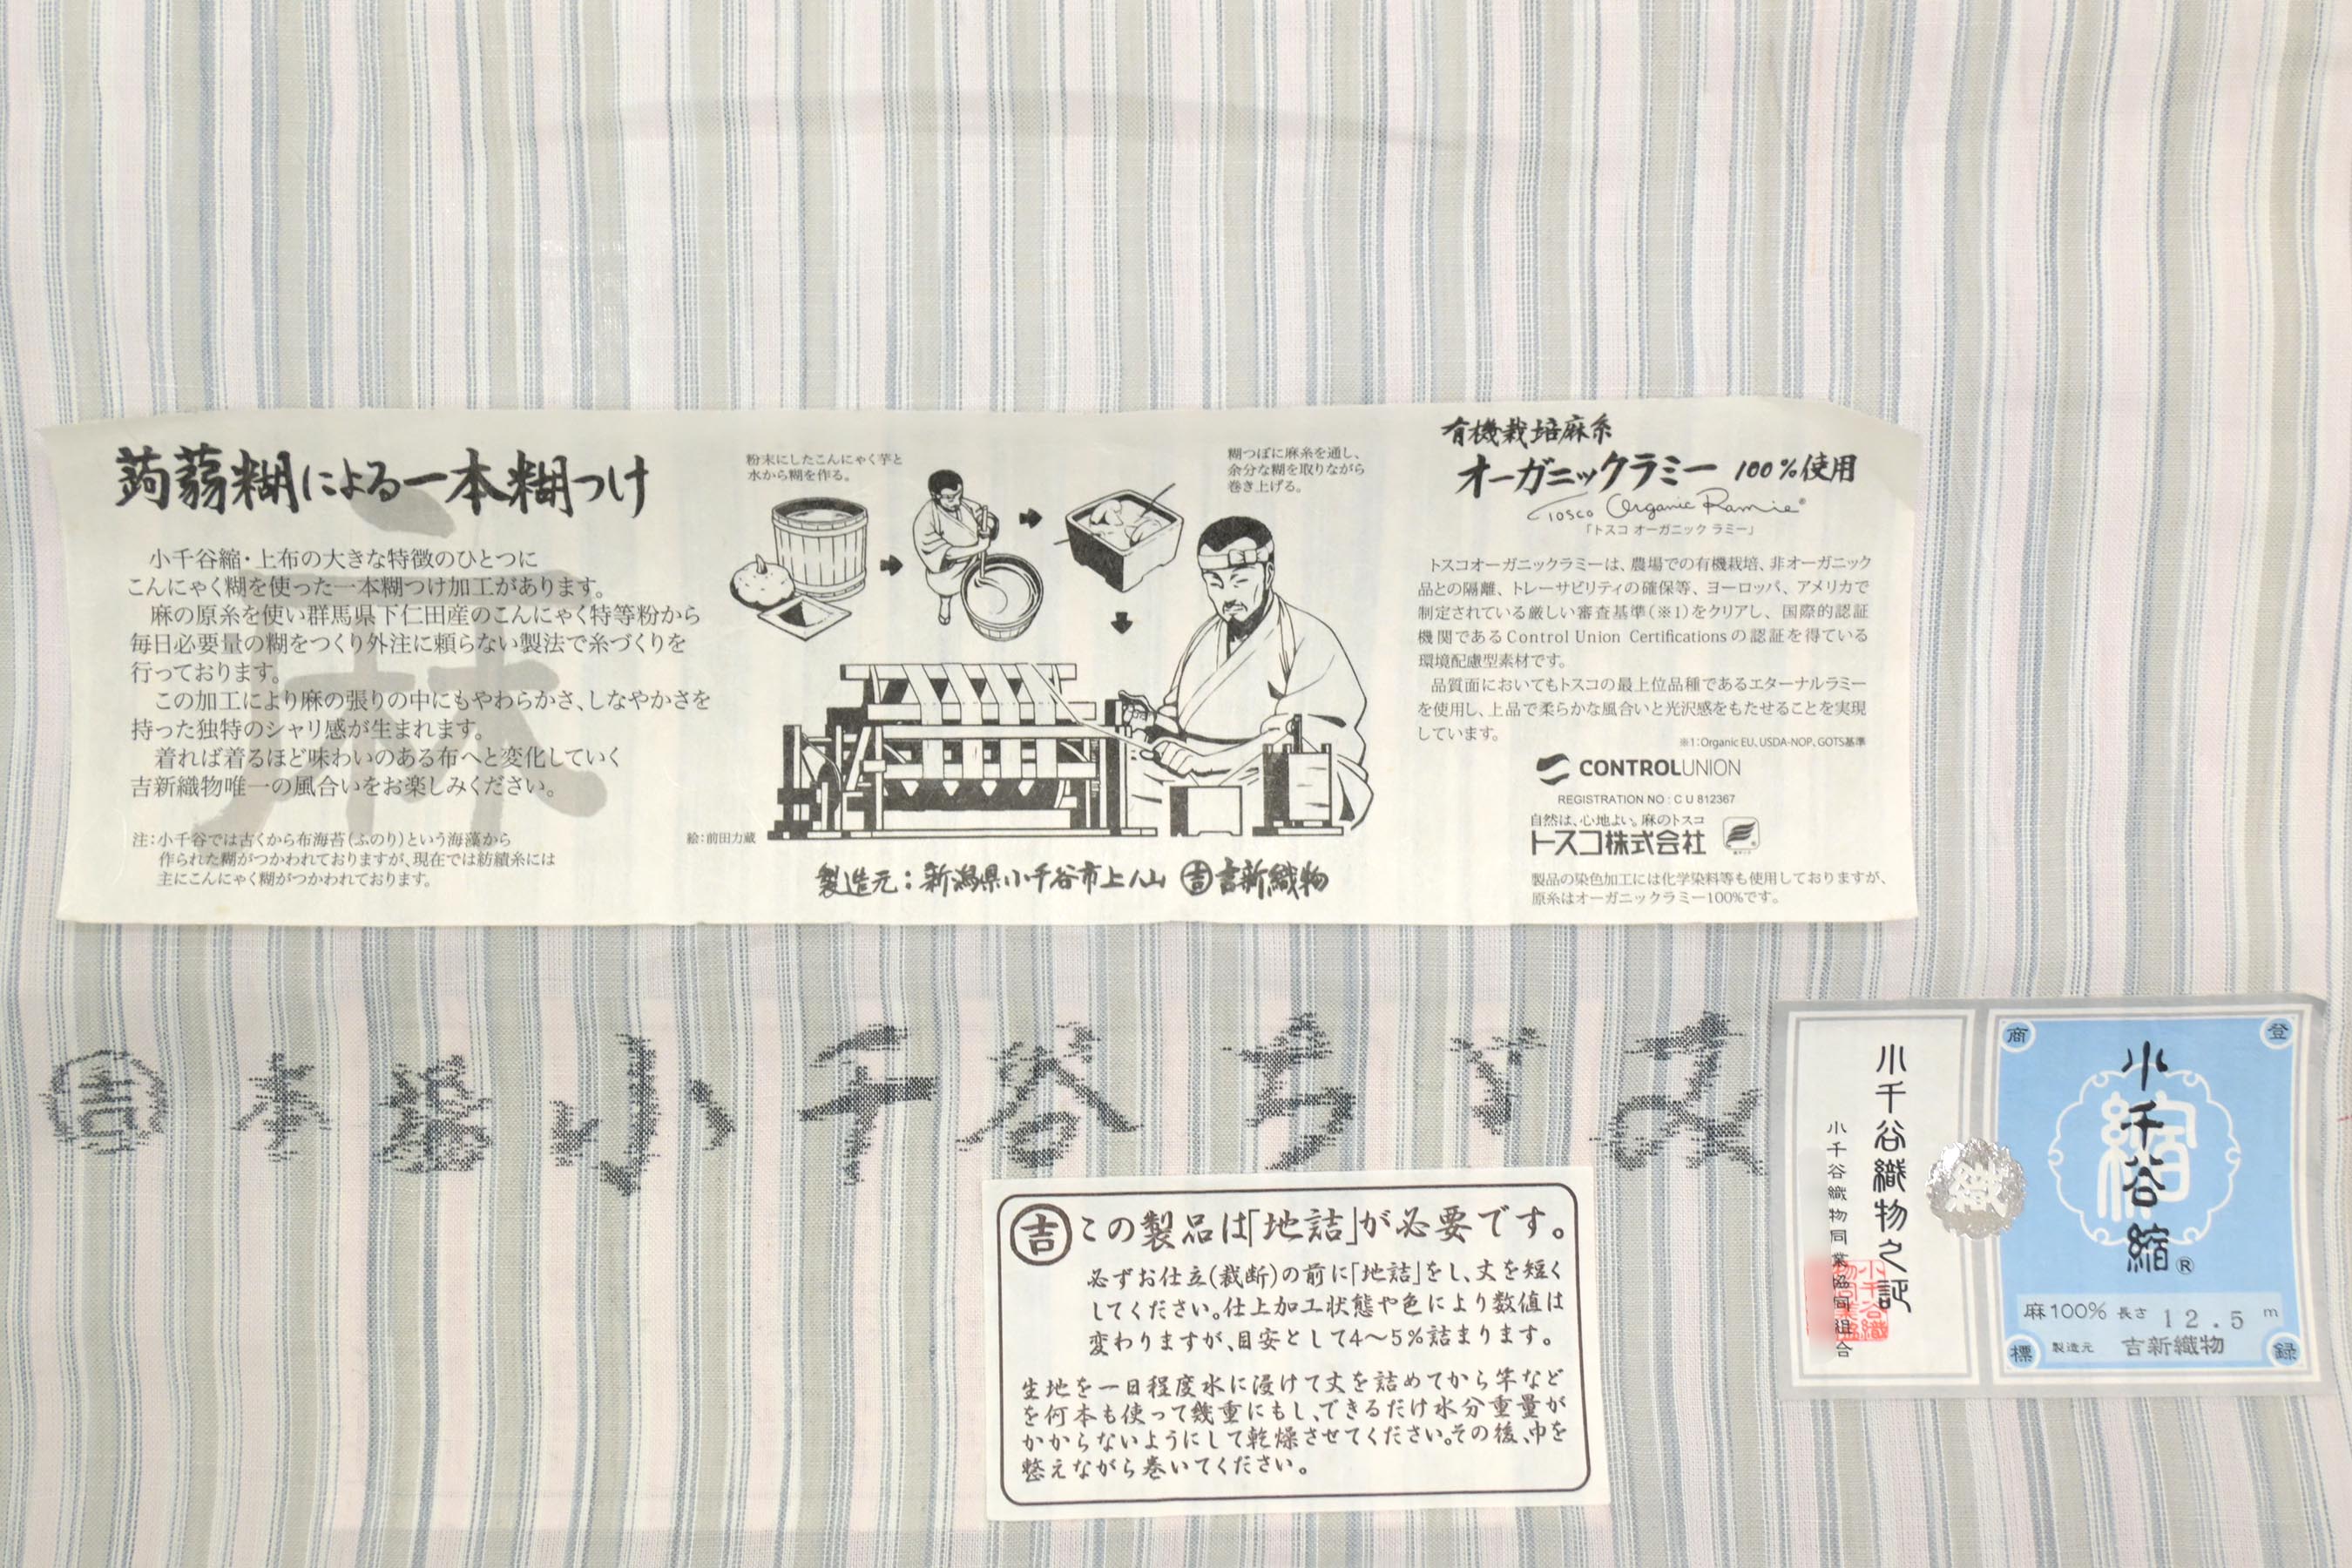 蒟蒻糊による一本糊つけ
小千谷縮・上布の大きな特徴のひとつに
こんにゃく糊を使った一本糊つけ加工があります。
麻の原糸を使い群馬県下仁田産のこんにゃく特等粉から
毎日必要量の糊をつくり外注に頼らない製法で糸づくりを
行っております。
この加工により麻の張りの中にもやわらかさ、しなやかさを
持った独特のシャリ感が生まれます。
着れば着るほど味わいのある布へと変化していく
吉新織物唯一の風合いをお楽しみください。
注:小千谷では古くから布海苔(ふのり)という海藻から
作られた糊がつかわれておりますが、現在では紡績糸には
主にこんにゃく糊がつかわれております。
麻
粉末にしたこんにゃく芋と
水から糊を作る。
糊つぼに麻糸を通し、
余分な糊を取りながら
巻き上げる。
絵:前田力蔵
製造元:新潟県小千谷市上ノ山 吉 吉新織物
有機栽培麻糸
オーガニックラミー 100%使用
Tosco Organic Ramie®
「トスコ オーガニック ラミー」
トスコオーガニックラミーは、農場での有機栽培、非オーガニック
品との隔離、トレーサビリティの確保等、ヨーロッパ、アメリカで
制定されている厳しい審査基準(※1)をクリアし、国際的認証
機関であるControl Union Certificationsの認証を得ている
環境配慮型素材です。
品質面においてもトスコの最上位品種であるエターナルラミー
を使用し、上品で柔らかな風合いと光沢感をもたせることを実現
しています。
※1:Organic EU, USDA-NOP, GOTS基準
CONTROLUNION
REGISTRATION NO : C U 812367
自然は、心地よい。麻のトスコ
トスコ株式会社
製品の染色加工には化学染料等も使用しておりますが、
原糸はオーガニックラミー100%です。
吉 本塩小千谷ちゞみ
吉 この製品は「地詰」が必要です。
必ずお仕立(裁断)の前に「地詰」をし、丈を短く
してください。仕上加工状態や色により数値は
変わりますが、目安として4〜5%詰まります。
生地を一日程度水に浸けて丈を詰めてから竿など
を何本も使って幾重にもし、できるだけ水分重量が
かからないようにして乾燥させてください。その後、巾を
整えながら巻いてください。
小千谷織物之証
小千谷織物同業協同組合
織
登録商標
縮
小千谷縮®
麻100% 長さ 12.5 m
製造元 吉新織物